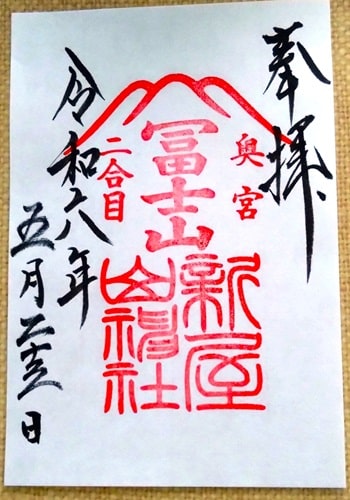 奉拝
奥宮
冨士山
二合目
新屋
山神社
令和六年
五月二十三日